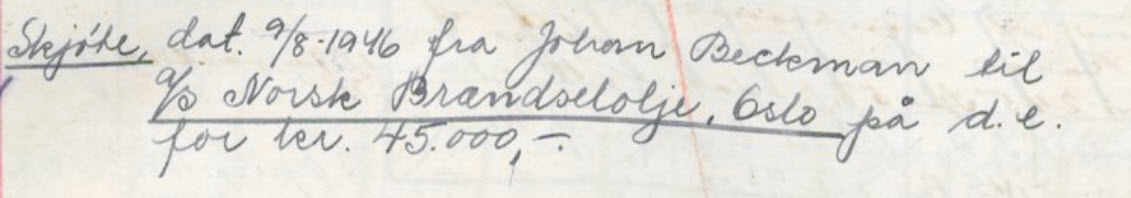 Skjøte, dat. 9/8-1946 fra Johan Beckman til
a/s Norsk Brændselolje, Oslo på d.e.
for kr. 45.000,-.